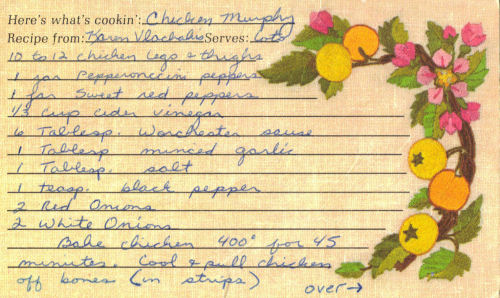 Here's what's cookin': Chicken Murphy
Recipe from: Karen Vlachakis Serves: Lots
10 to 12 chicken legs & thighs
1 jar Pepperoncini peppers
1 jar Sweet red peppers
1/3 cup cider vinegar
6 Tablesp. Worchester sause
1 Tablesp minced garlic
1 Tablesp. salt
1 teasp. black pepper
2 Red Onions
2 White Onions
Bake chicken 400° for 45
minutes. Cool & pull chicken
off bones (in strips)
over→